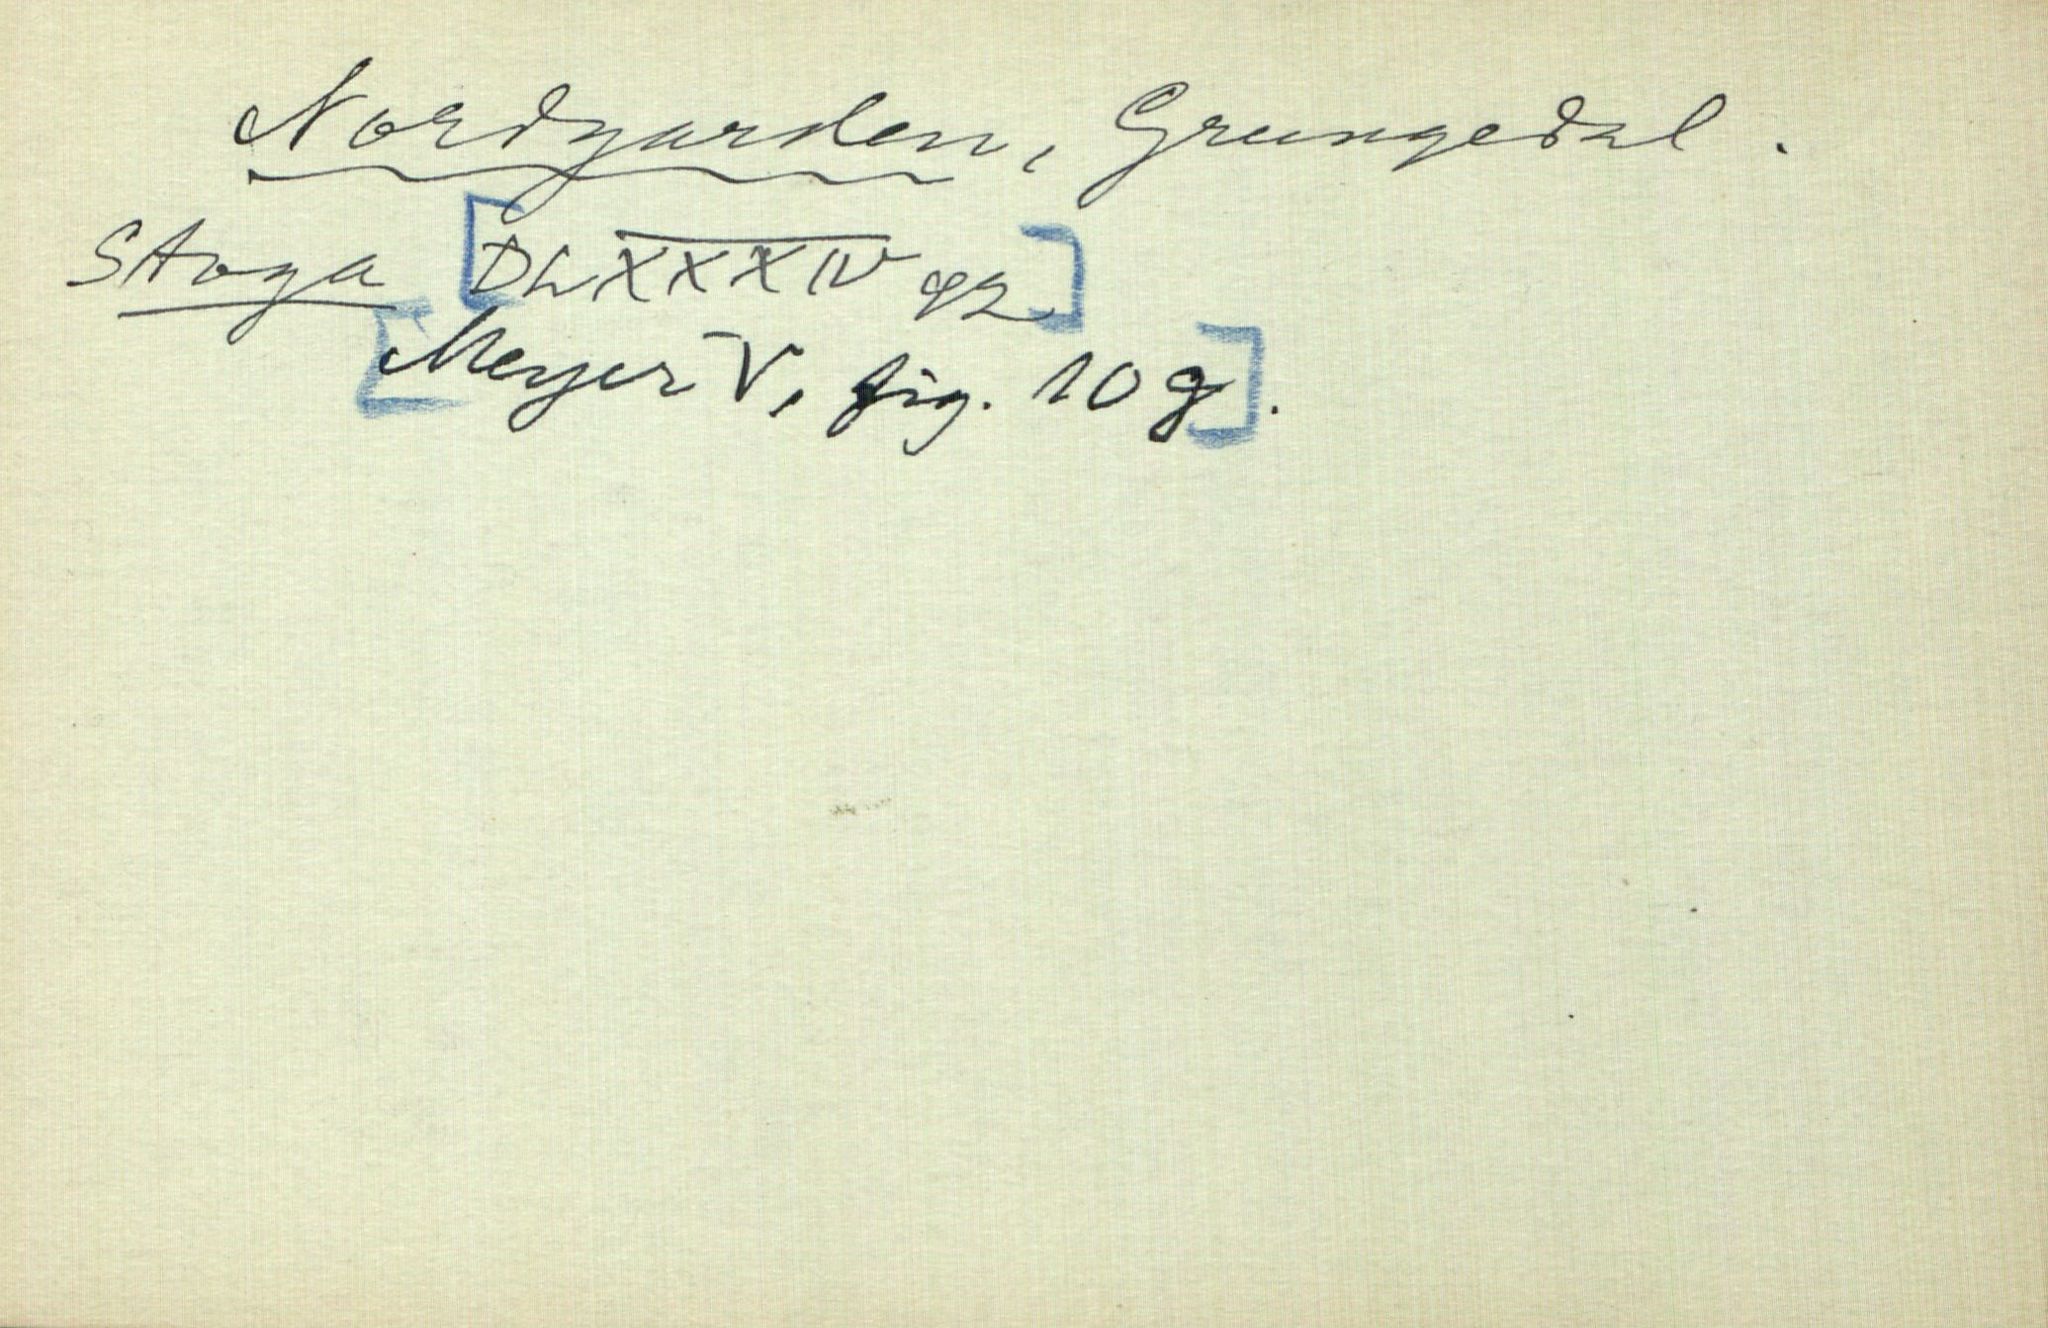 Nordgarden, Grungedal.
Stoga [DLXXXIV 92]
[Meyer V, fig. 10 g].